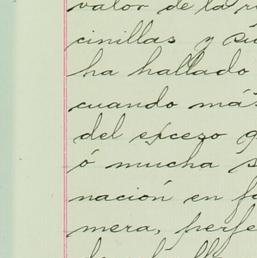 valor de la
cinillas y su
ha hallado
cuando más
del exceso
ó mucha
nación en
mera, perfe